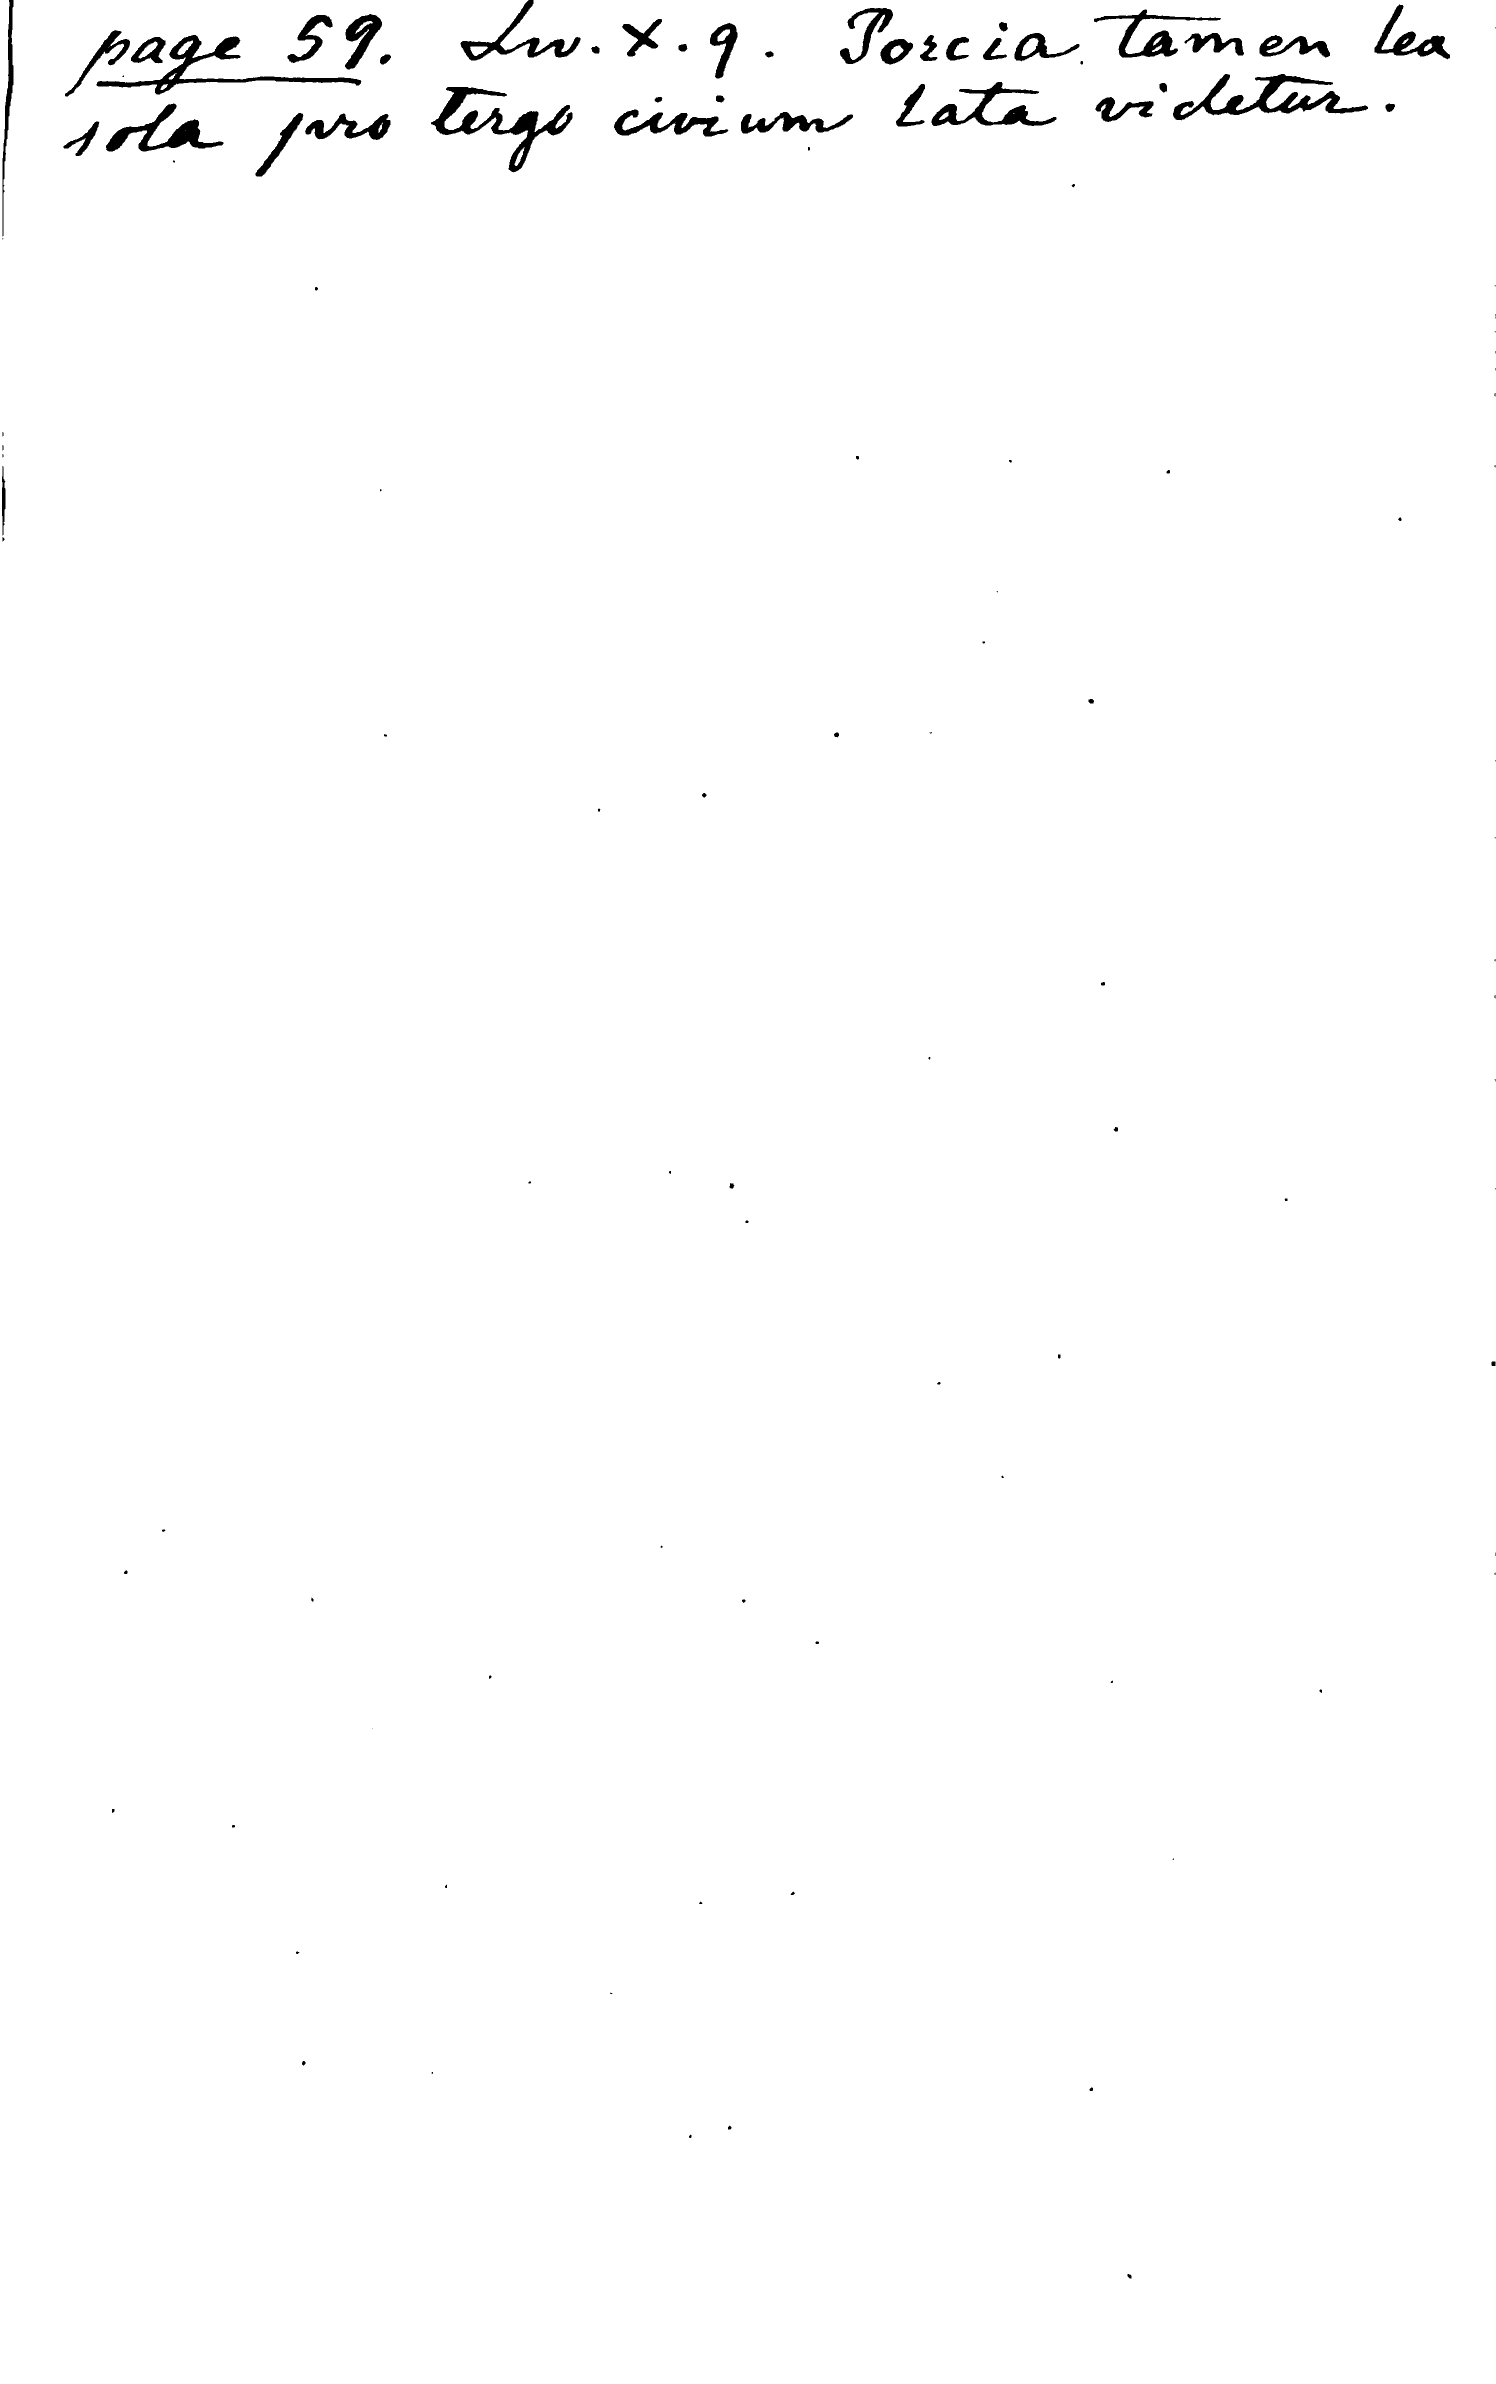 page 59. Liv. X. 9. Porcia tamen lex
sola pro tergo civium lata videtur.